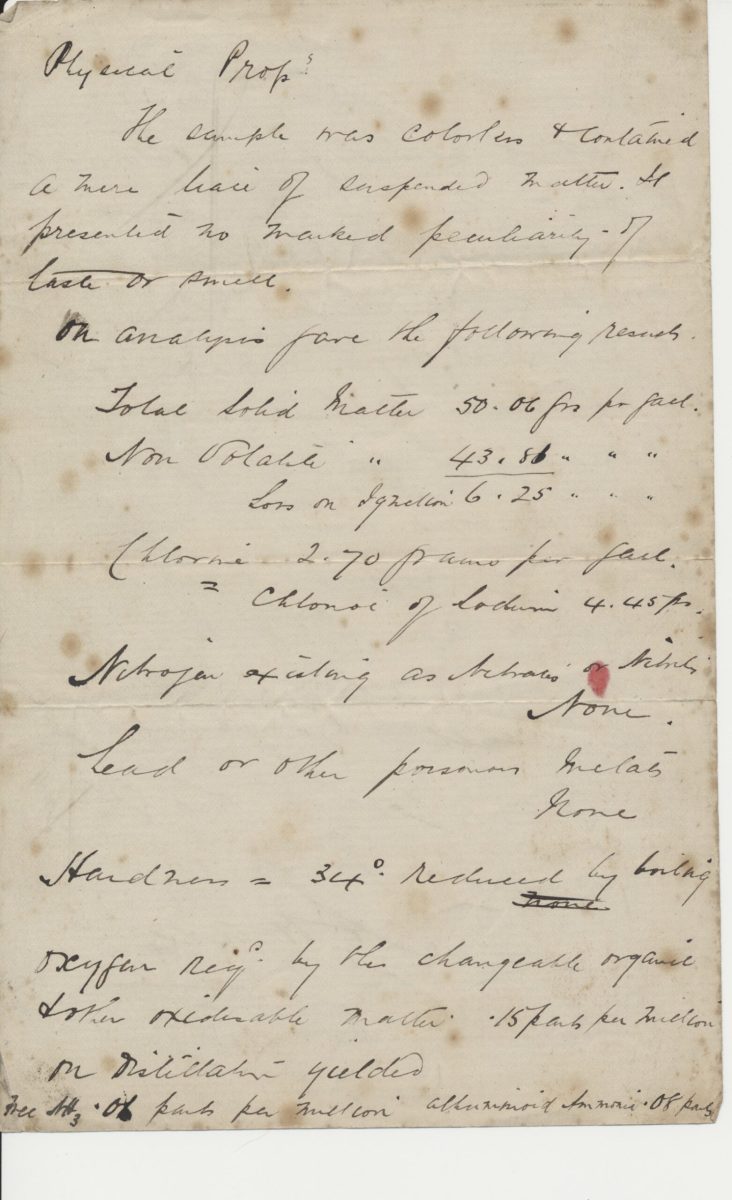 Physical Props
The sample was colorless & contained
a mere trace of suspended matter. It
presented no marked peculiarity of
taste or smell.
On analysis gave the following results.
Total Solid Matter 50.06 grs per gall.
Non Volatile " 43.81 " " "
Loss on Ignition 6.25 " " "
Chlorine 2.70 grains per gall.
= Chloride of Sodium 4.45 grs.
Nitrogen existing as Nitrates or Nitrites
None.
Lead or other poisonous Metals
None
Hardness = 34°. reduced by boiling
none
Oxygen reqd. by the changeable organic
& other oxidisable matter .15 parts per million
on Distillation yielded
Free NH3 .01 parts per million albuminoid Ammonia .08 parts